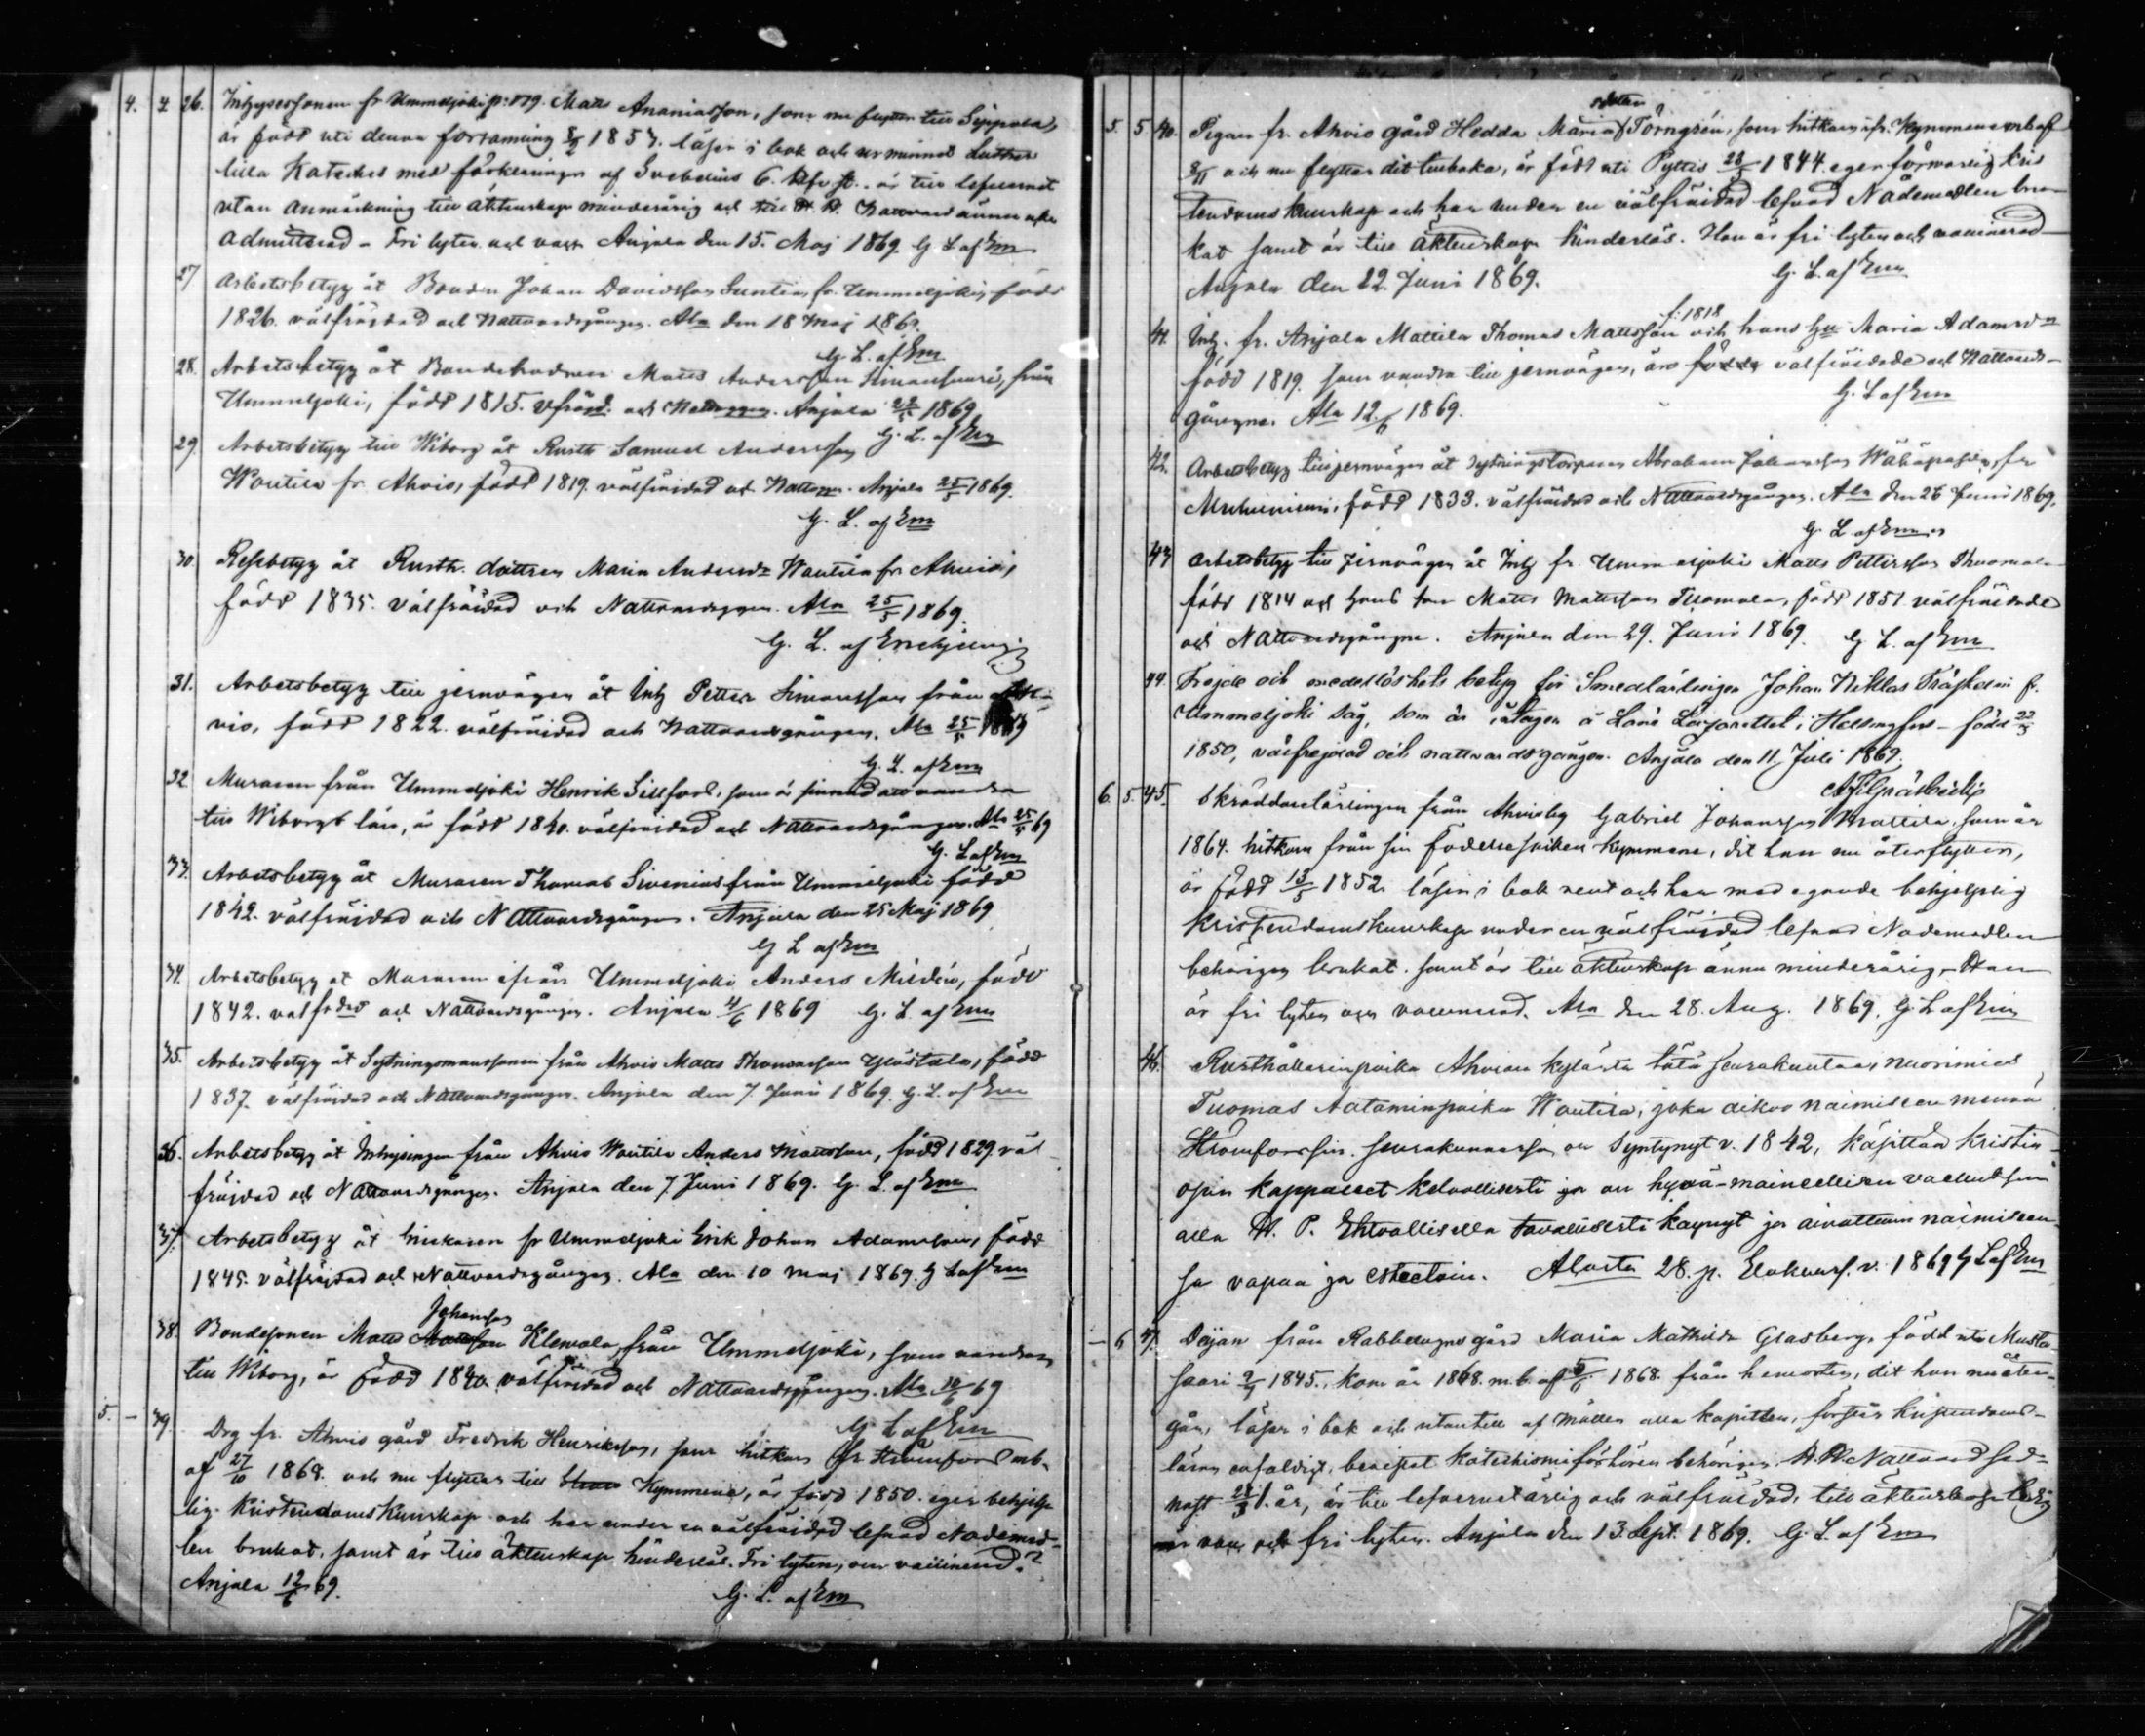 4. 4 26. Inhysessonen fr Ummeljoki p: 179. Matts Ananiasson, som nu flyttar till Sippola,
är född uti denna forsamling 1857. läser i bok och ur minnet Luthers
lilla Kateches med förklaringen af Svebelius 6. är till lefvernet
utan anmärkning till äktenskap minderårig och till H. H. Nattvard ännu
admitterad - Fri lyten och vacc. Anjala den 15. Maj 1869. G L af Em
27 Arbetsbetyg åt Bonden Johan Davidsson Suntio, fr. Ummeljoki, född
1826. välfräjdad och Nattvardsgången. Ala den 18 Maj 1869.
G. L. af Em
28. Arbetsbetyg åt Matts Andersson från
Ummeljoki, född 1815. och Anjala 22/5 1869
29. Arbetsbetyg till Wiborg åt Rusth Samuel Andersson G. L. af Em
Woutila fr. Ahvio, född 1819. välfräidad och Nattvg. Anjala 25/5 1869.
G. L. af Em
30. Resebetyg åt Rusth. dottren Maria Andersdr Woutila fr Ahvio,
född 1835. välfräidad och Nattvardsggen. Ala 25/5 1869.
G. L. af
31. Arbetsbetyg till jernvägen åt Inh Petter Simonsson från Ah-
vio, född 1822. välfräidad och Nattvardsgången. Ala 25/5 1869
G. L. af Em
32 Muraren från Ummeljoki Henrik Sillford, som är sinnad att vandra
till Wiborgs län, är född 1840. välfräidad och Nattvardsgången. Ala 25/5 69
G. L af Em
33. Arbetsbetyg åt Muraren Thomas Sivenius från Ummeljoki född
1842. välfräidad och Nattvardsgången. Anjala den 25 Maj 1869
G L af Em
34. Arbetsbetyg åt Muraren ifrån Ummeljoki Anders Milden, född
1842. välfrdad och Nattvardsgången. Anjala 4/6 1869 G. L. af Em
35. Arbetsbetyg åt Sytningsmanssonen från Ahvio Matts Thomasson Ylöstalo, född
1837. välfräidad och Nattvardsgången. Anjala den 7 Juni 1869. G. L. af Em
36. Arbetsbetyg åt Inhysingen från Ahvio Woutila Anders Mattsson, född 1829. väl
fräjdad och Nattvardsgången. Anjala den 7 Juni 1869. G. L. af Em
37. Arbetsbetyg åt fr Ummeljoki Erik Johan Adamsson, född
1845. välfräjdad och Nattvardsgången. Ala den 10 Maj 1869. G L af Em
Johansson
38. Bondesonen Matts Mattsson Klemola, från Ummeljoki, som vandrar
till Wiborg, är född 1840. välfräidad och Nattvardsgången. Ala 10/6 69
G. L af Em
5. - 39. Drg fr. Ahvio gård Fredrik Henriksson, som hitkom fr Strömfors mb.
af 27/10 1868. och nu flyttar till Kymmene, är född 1850. eger behjelp
lig Kristendomskunskap och har under en välfräidad lefnad Nådemed-
len brukat, samt är till äktenskap hinderlös. Fri lyten, och vaccinerad.
Anjala 12/6 69.
G. L. af Em
dottren
5. 5 40. Pigan fr. Ahvio gård Hedda Maria Törngrén, som hitkom ifr. Kymmene mb af
och nu flyttar dit tillbaka, är född uti Pyttis 28/5 1844. eger försvarlig Kris
tendoms kunskap och har under en välfräidad lefnad Nådemedlen bru-
kat samt är till äktenskap hinderlös. Hon är fri lyten och vaccinerad
Anjala den 22. Juni 1869. G. L. af Em
f: 1818
41. Inh. fr. Anjala Mattila Thomas Mattsson och hans hu Maria Adamsdr
född 1819. som vandra till jernvägen, äro födda välfräidade och Nattvards-
gångna. Ala 12/6 1869. G. L af Em
42. Arbetsbetyg till jernvägen åt Sytningstorparen Abraham Johansson fr
Muhniemi, född 1833. välfräidad och Nattvardsgången. Ala den 26 Juni 1869.
G. L af Em
43 Arbetsbetyg till jernvägen åt Inh fr. Ummeljoki Matts Pettersson Thuomala
född 1814 och hans son Matts Mattsson Tuomala, född 1851 välfräidade
och Nattvardsgångna. Anjala den 29. Juni 1869. G L. af Em
44. Frejde och medellöshets betyg för Smedlärlingen Johan Niklas Träskelin fr.
Ummeljoki såg, som är intagen å Läns Lazarettet i Helsingfors - född 22/5
1850, välfrejdad och nattvardsgången. Anjala den 11 Juli 1869.
6. 5. 45. Skräddarelärlingen från Ahvioby Gabriel Johansson Mattila, som år
1864. hitkom från sin Födelsesocken Kymmene, dit han nu återflyttar,
är född 13/5 1852. läser i bok rent och har med egande behjelplig
Kristendomskunskap under en välfräidad lefnad Nådemedlen
behörigen brukat. samt är till äktenskap ännu minderårig. Han
är fri lyten och vaccinerad. Ala den 28. Aug. 1869. G. L af Em
46. Rusthållarinpoika Ahvion kylästä tätä seurakuntaa, nuorimies
Tuomas Aataminpoika Woutila, joka aikoo naimiseen mennä
Strömforssin seurakunnassa, on syntynyt v. 1842, käsittää kristin-
opin kappaleet kelvollisesti ja on hyvä-maineellisen vaelluksen
alla H. P. Ehtoollisella tavallisesti käynyt ja aviottaan naimiseen
sa vapaa ja esteetöin. Alasta 28. p. Elokuus. v. 1869 G L af Em
- 6 47. Dejan från Rabbelugns gård Maria Mathilda Glasberg, född uti Musta-
saari 1845., kom år 1868. m.b. af 1868. från hemorten, dit hon nu åter-
går, läser i bok och utantill af Möller alla kapitlen, förstår kristendoms-
läran enfaldigt, bevistat Katechismiförhören behörigen. H. H. Nattvard sed-
nast l. år, är till lefvernet ärlig och välfräidad, till äktenskap ledig
vacc och fri lyten. Anjala den 13. Sept. 1869. G. L. af Em